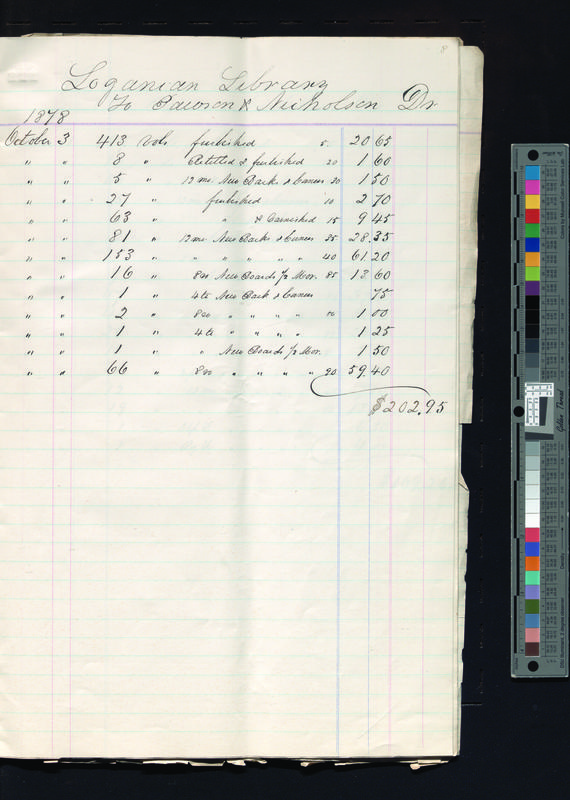 8
Loganian Library
To Pawson & Nicholson Dr
1878
October 3 413 vols furbished 5. 20 65
" " 8 " Retitled & furbished 20 1 60
" " 5 " 12 mo. New Backs & Corners 30 1 50
" " 27 " furbished 10 2 70
" " 63 " " & Varnished 15 9 45
" " 81 " 12 mo. New Backs & Corners 35 28.35
" " 153 " " " " " " 40 61 20
" " 16 " 8vo New Boards ½ Mor. 85 13 60
" " 1 " 4to New Back & Corners 75
" " 2 " 8vo " " " " 50 1 00
" " 1 " 4to " " " " 1 25
" " 1 " " New Boards ½ Mor. 1 50
" " 66 " 8vo " " " " 90 59.40
$202.95